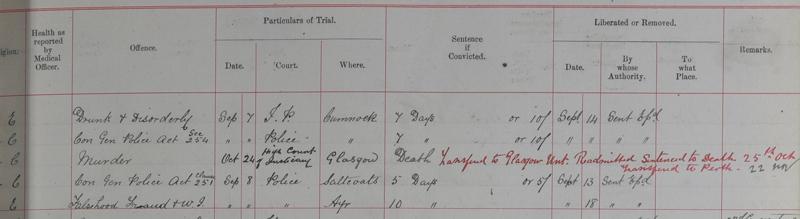 Particulars of Trial. Liberated or Removed.
Health as reported by Medical Officer. Offence. Date. Court. Where. Sentence if Convicted. Date. By whose Authority. To what Place. Remarks.
E Drunk & Disorderly Sep 7 J. P. Cumnock 7 Days or 10/ Sept 14 Sent Exp'd
C Con Gen Police Act Sec 254 " " Police " 7 " or 10/ " " " "
C Murder Oct 24 High Court of Justiciary Glasgow Death Transferd to Glasgow Unt. Readmitted Sentenced to Death 25th Oct
Transferd to Perth - 22 Nov
E Con Gen Police Act Clause 251 Sep 8 Police Saltcoats 5 Days or 5/ Sept 13 Sent Exp'd
E Falsehood Fraud & W. I. " " " Ayr 10 " " 18 " "